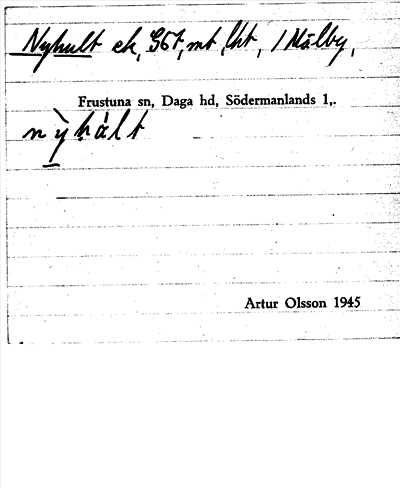 Nyhult ek, 967, mt, lht, / Målby,
Frustuna sn, Daga hd, Södermanlands l,.
nỳhál t
Artur Olsson 1945